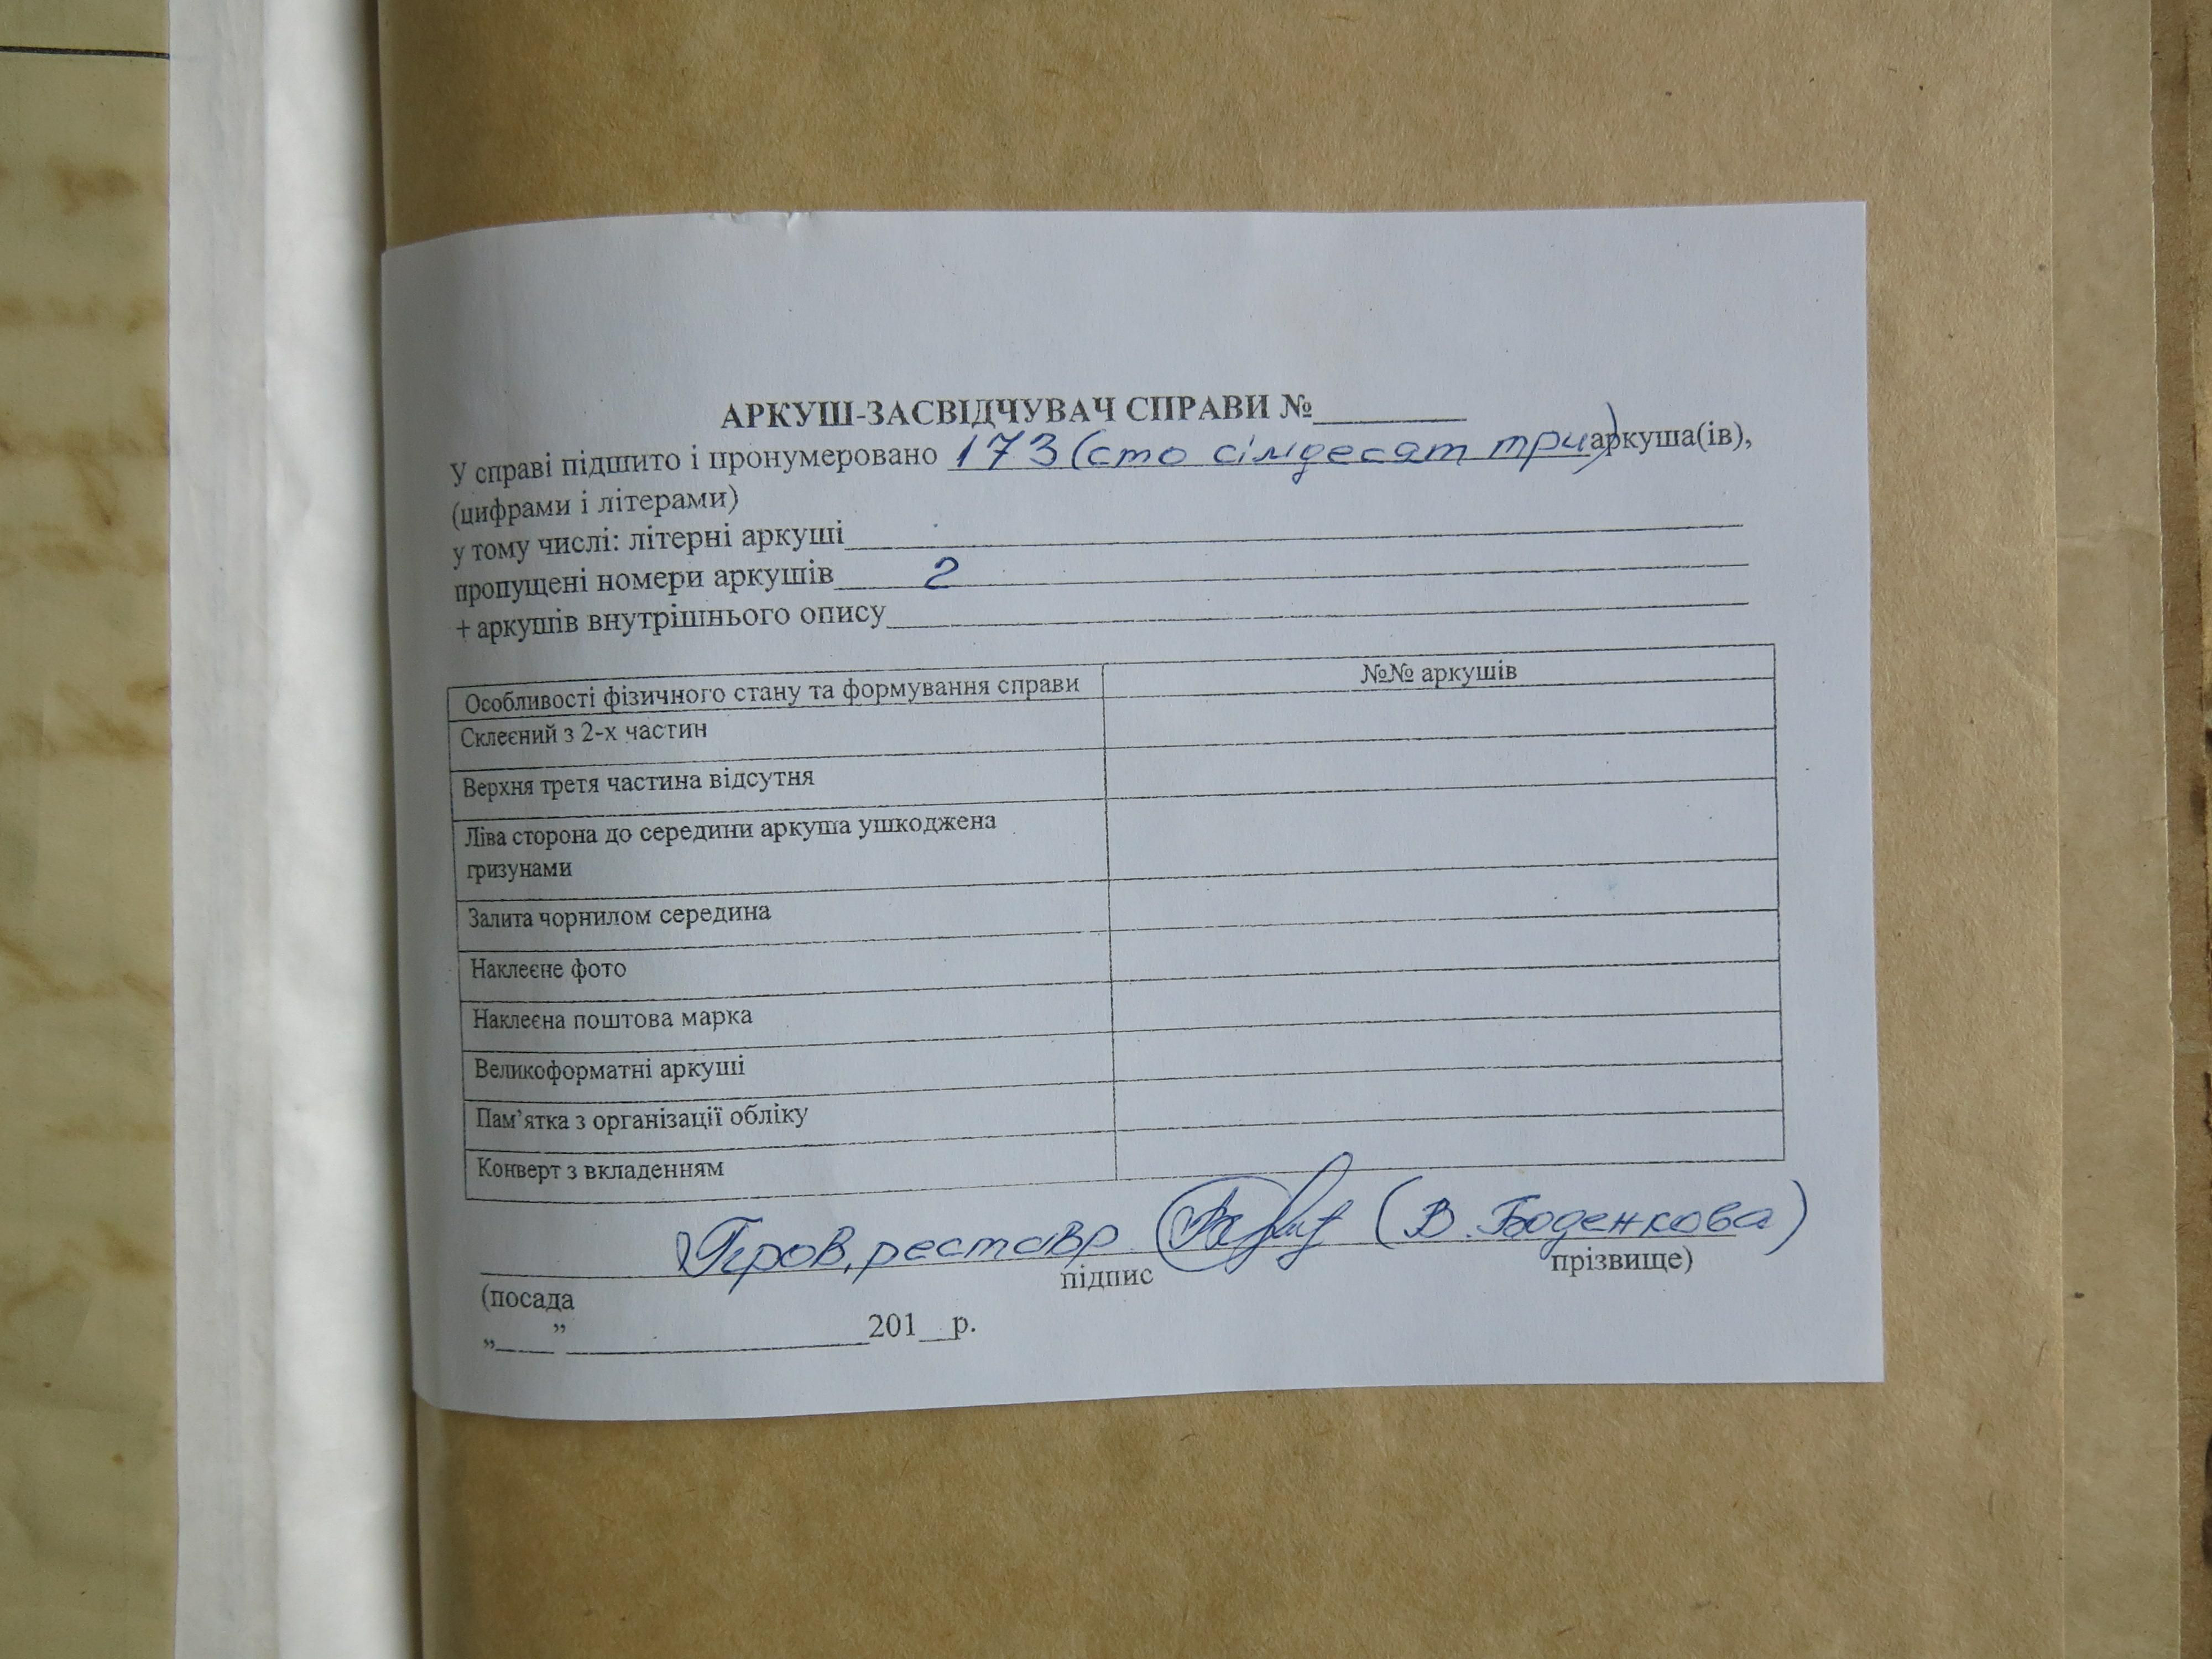 АРКУШ-ЗАСВІДЧУВАЧ СПРАВИ №________
У справі підшито і пронумеровано 173 (сто сімдесят три) аркуша(ів),
(цифрами і літерами)
у тому числі: літерні аркуші
пропущені номери аркушів 2
+ аркушів внутрішнього опису
Особливості фізичного стану та формування справи №№ аркушів
Склеєний з 2-х частин
Верхня третя частина відсутня
Ліва сторона до середини аркуша ушкоджена
гризунами
Залита чорнилом середина
Наклеєне фото
Наклеєна поштова марка
Великоформатні аркуші
Пам’ятка з організації обліку
Конверт з вкладенням
Пров. реставр. (В. Боденкова)
(посада підпис прізвище)
„____” ____________201__р.